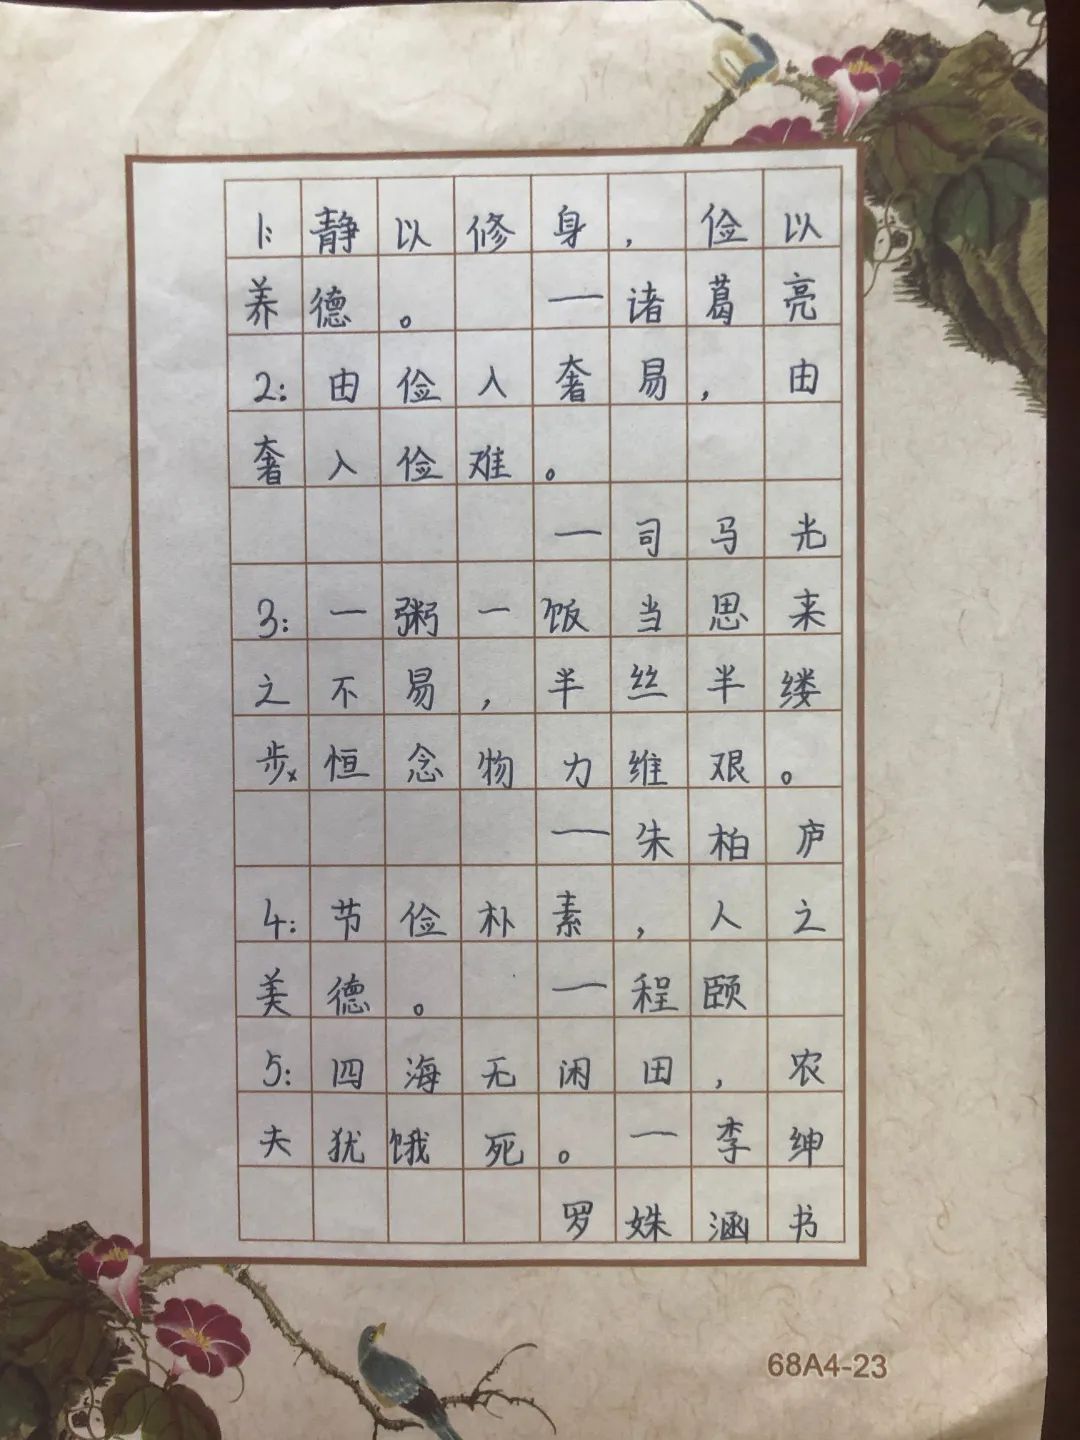 1:静以修身，俭以
养德。 一诸葛亮
2:由俭入奢易，由
奢入俭难。
一司马光
3:一粥一饭当思来
之不易，半丝半缕
步x恒念物力维艰。
一朱柏庐
4:节俭朴素，人之
美德。 一程颐
5:四海无闲田，农
夫犹饿死。一李绅
罗姝涵书
68A4-23